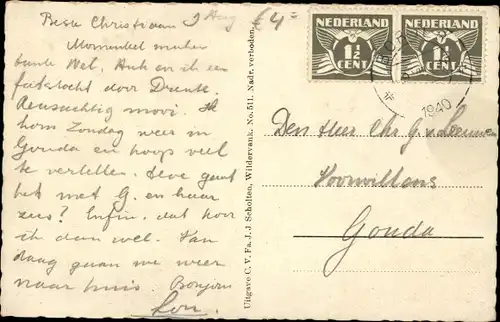 Beste Christiaan 2 Aug
Momenteel maken
tante Nel, Henk en ik een
fietstocht door Drente.
Reusachtig mooi. Ik
kom Zondag weer in
Gouda en hoop veel
te vertellen. Hoe gaat
het met G. en haar
zus? Enfin, dat hoor
ik dan wel. Van
daag gaan we weer
naar huis. Bonjour
Lou.
Uitgave C. V. Fa. J. J. Scholten, Wildervank. No. 511. Nadr. verboden.
NEDERLAND NEDERLAND
1½ 1½
CENT CENT
1940
Den Heer Chr. G. v. Leeuwen
Voorwillens
Gouda